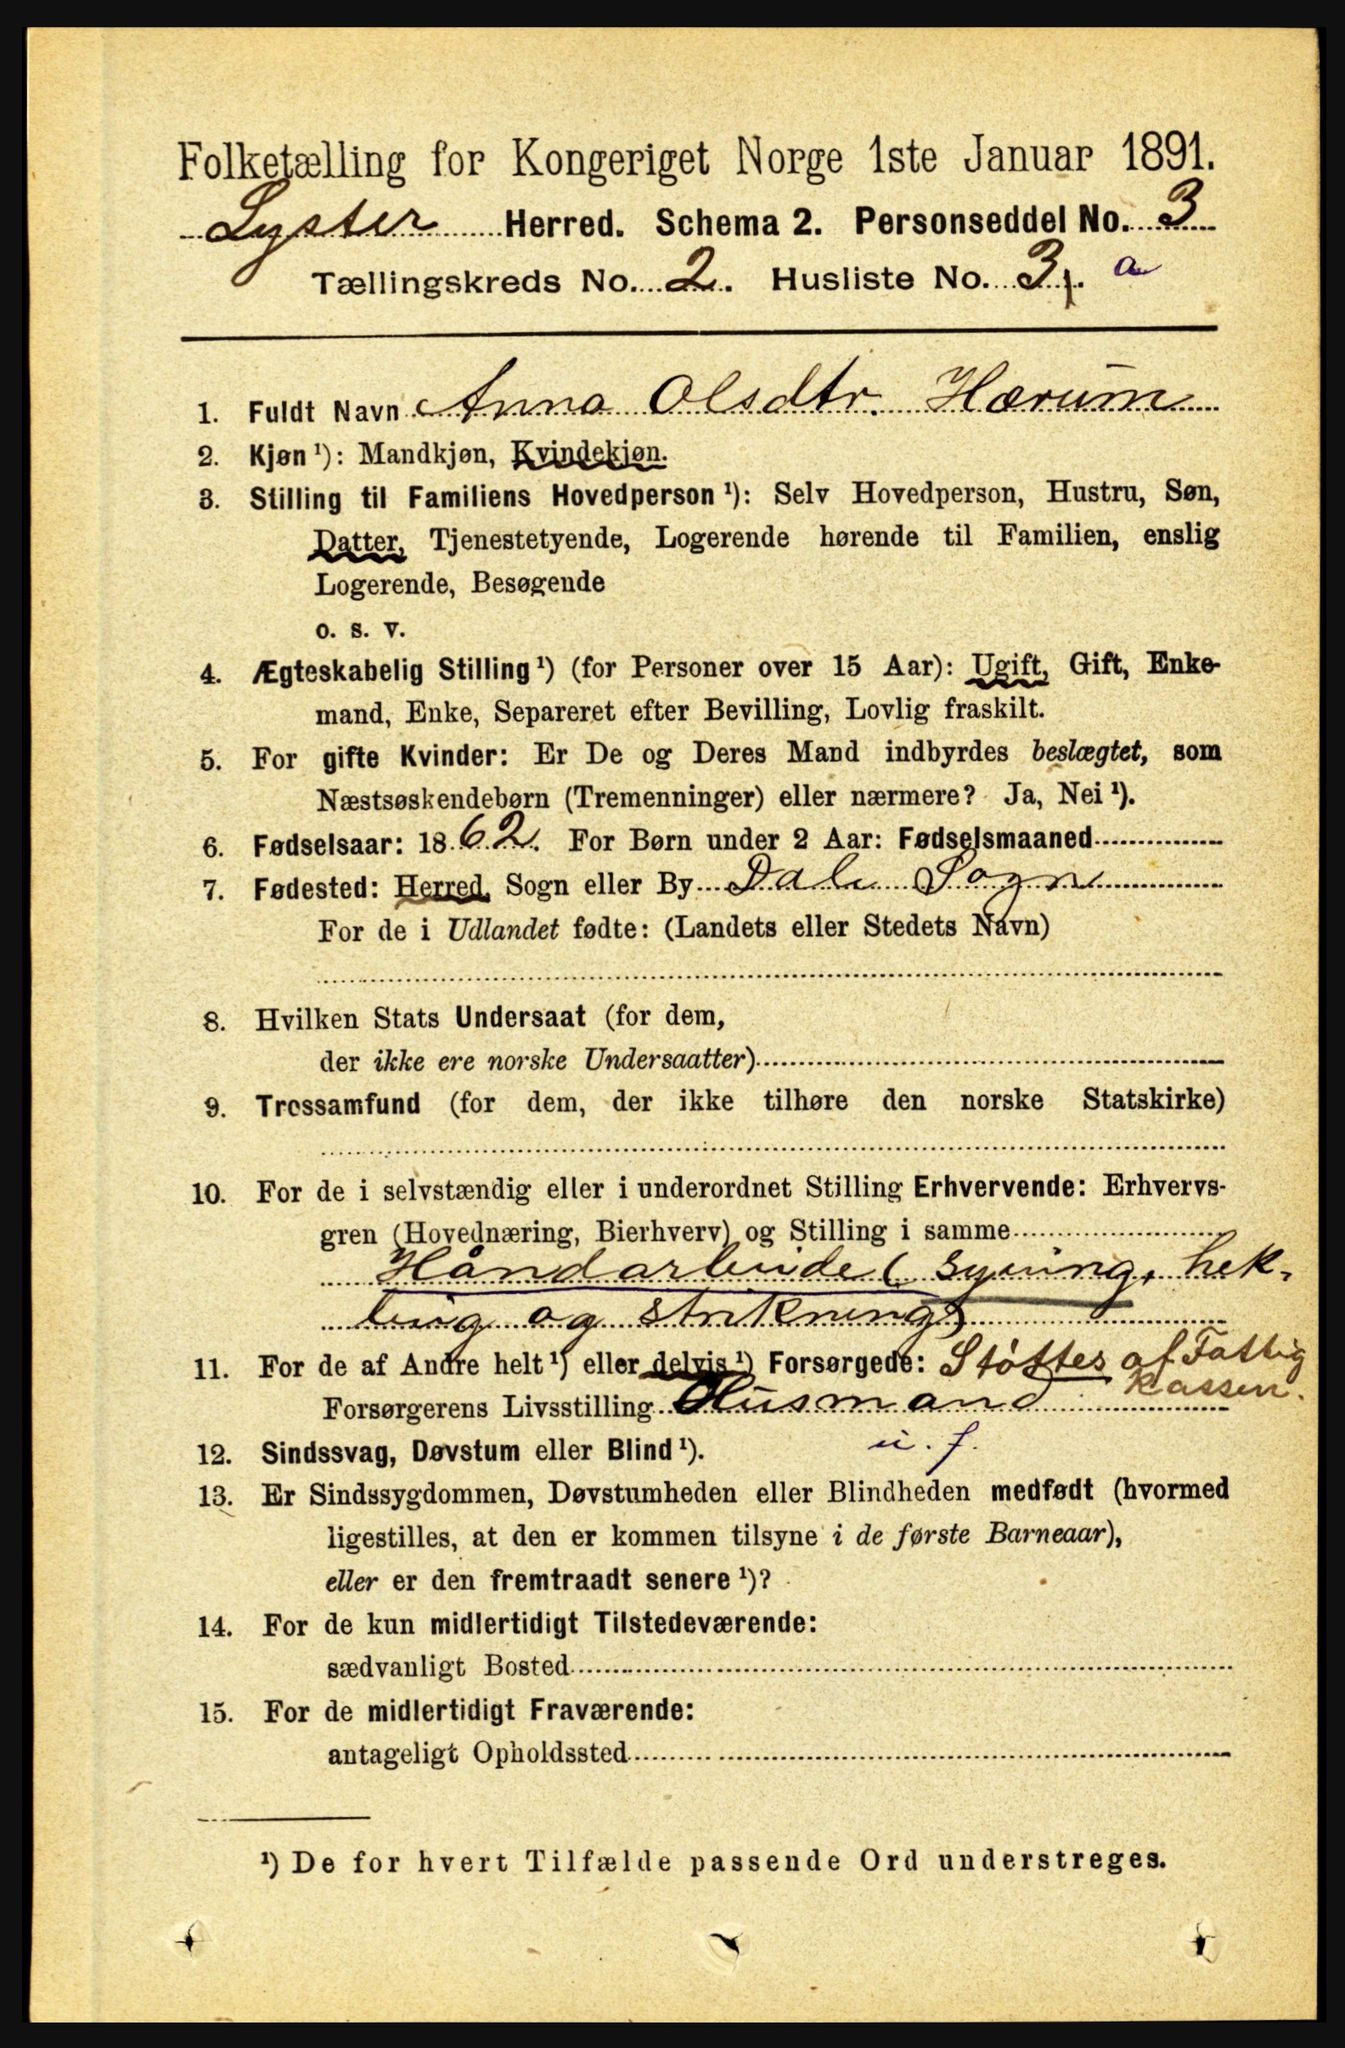 Folketælling for Kongeriget Norge 1ste Januar 1891.
Lyster Herred. Schema 2. Personseddel No. 3
Tællingskreds No. 2. Husliste No. 3. a
1. Fuldt Navn Anna Olsdtr. Hærum
2. Kjøn ¹): Mandkjøn, Kvindekjøn.
3. Stilling til Familiens Hovedperson ¹): Selv Hovedperson, Hustru, Søn,
Datter, Tjenestetyende, Logerende hørende til Familien, enslig
Logerende, Besøgende
o. s. v.
4. Ægteskabelig Stilling ¹) (for Personer over 15 Aar): Ugift, Gift, Enke-
mand, Enke, Separeret efter Bevilling, Lovlig fraskilt.
5. For gifte Kvinder: Er De og Deres Mand indbyrdes beslægtet, som
Næstsøskendebørn (Tremenninger) eller nærmere? Ja, Nei ¹).
6. Fødselsaar: 1862. For Børn under 2 Aar: Fødselsmaaned
7. Fødested: Herred, Sogn eller By Dale Sogn
For de i Udlandet fødte: (Landets eller Stedets Navn)
8. Hvilken Stats Undersaat (for dem,
der ikke ere norske Undersaatter)
9. Trossamfund (for dem, der ikke tilhøre den norske Statskirke)
10. For de i selvstændig eller i underordnet Stilling Erhvervende: Erhvervs-
gren (Hovednæring, Bierhverv) og Stilling i samme
Håndarbeide (syning, hek-
ling og strikning)
11. For de af Andre helt ¹) eller delvis ¹) Forsørgede: Støttes af Fattig
kassen.
Forsørgerens Livsstilling Husmand
u. f.
12. Sindssvag, Døvstum eller Blind ¹).
13. Er Sindssygdommen, Døvstumheden eller Blindheden medfødt (hvormed
ligestilles, at den er kommen tilsyne i de første Barneaar),
eller er den fremtraadt senere ¹)?
14. For de kun midlertidigt Tilstedeværende:
sædvanligt Bosted
15. For de midlertidigt Fraværende:
antageligt Opholdssted
¹) De for hvert Tilfælde passende Ord understreges.